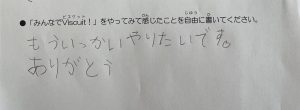 ●「みんなでViscuit!」をやってみて感じたことを自由に書いてください。
もういっかいやりたいです。
ありがとう